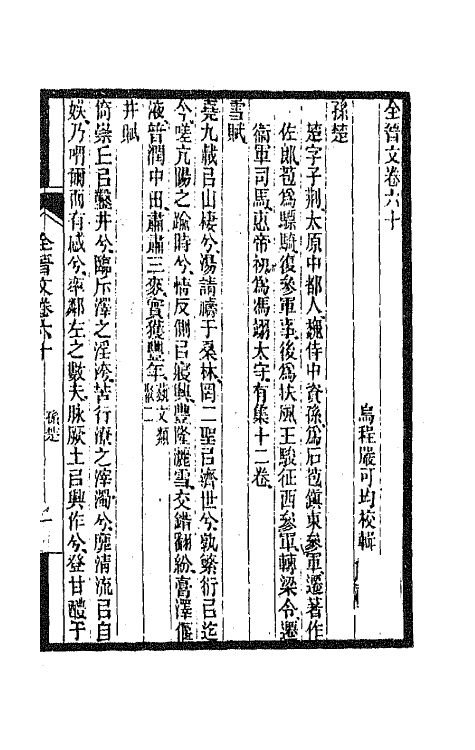 全晉文卷六十
烏程嚴可均校輯
孫楚
楚字子荆太原中都人魏侍中資孫爲石苞鎮東參軍遷著作
佐郎苞爲驃騎復參軍事後爲扶風王駿征西參軍轉梁令遷
衞軍司馬惠帝初爲馮翊太守有集十二卷
雪賦
堯九載㠯山棲兮湯請禱于桑林罔二聖㠯濟世兮孰繁衍㠯迄
今嗟亢陽之踰時兮情反側㠯寢興豐隆灑雪交錯翻紛膏澤偃
液普潤中田肅肅三麥實獲豐年藝文類聚二
井賦
倚崇丘㠯鑿井兮臨斥澤之淫洿苦行潦之滓濁兮靡清流㠯自
娛乃喟爾而有感兮率鄰左之數夫脉厥土㠯興作兮登甘醴于
全晉文卷六十
孫楚
一